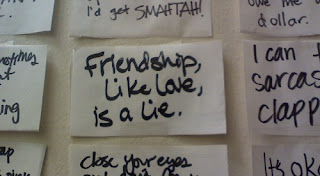 I'd get SMAHTAH!
owe me
dollar.
Friendship,
Like Love,
is a Lie.
I can
sarcas
clapp
close your eyes
It's ok